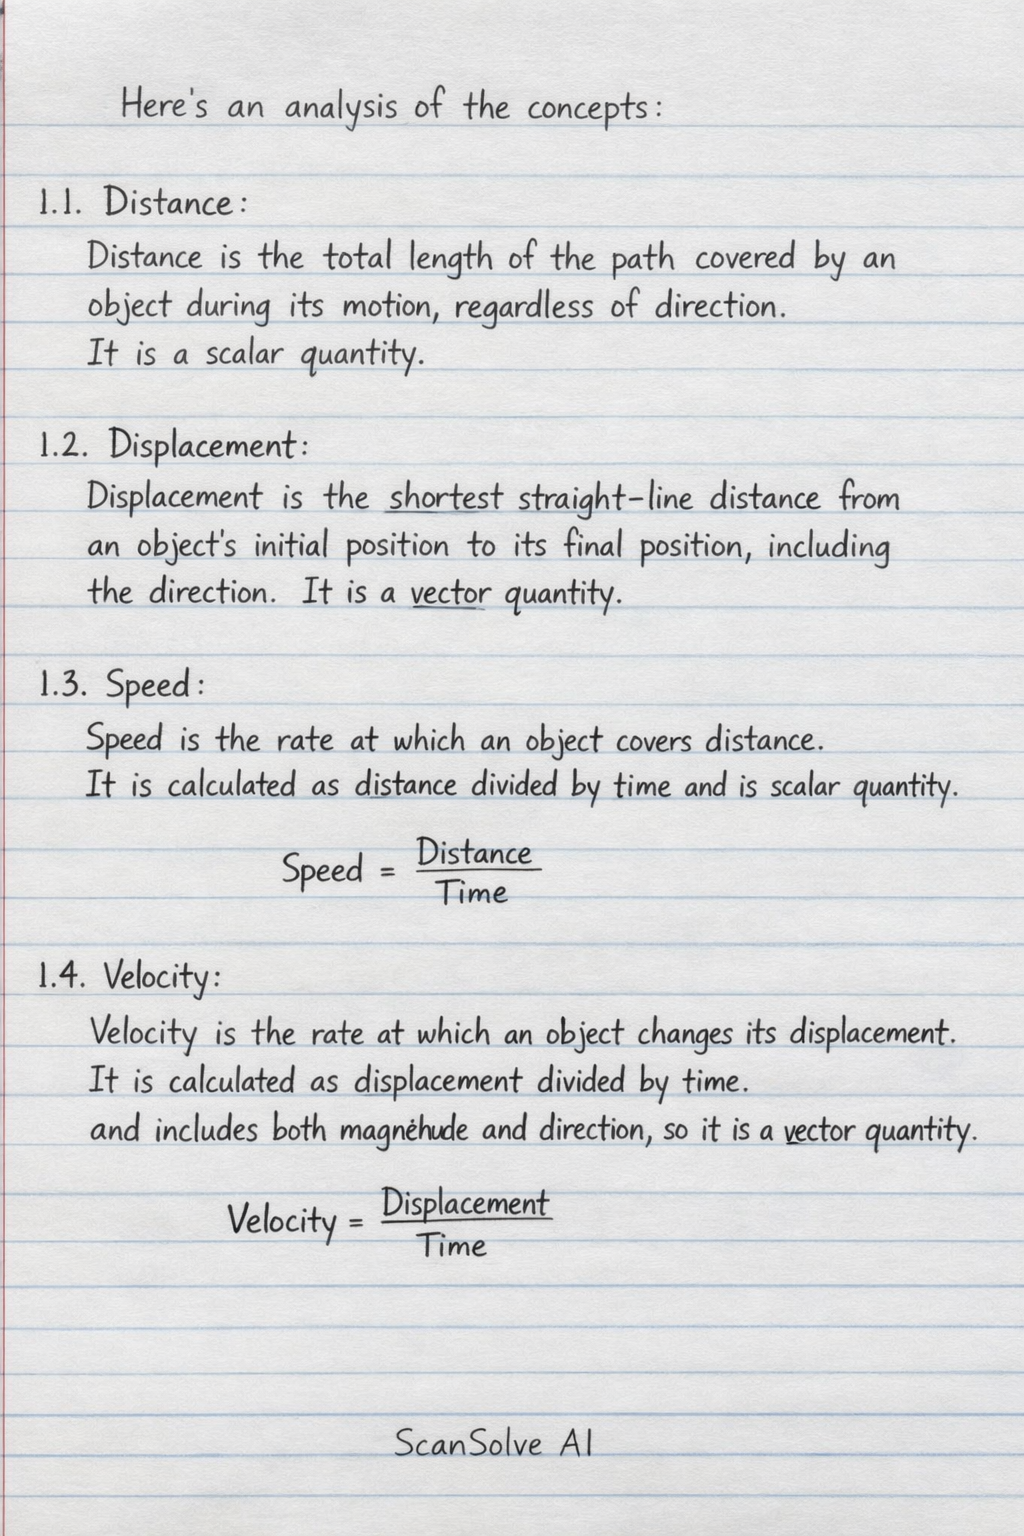 Here's an analysis of the concepts:
1.1. Distance:
Distance is the total length of the path covered by an
object during its motion, regardless of direction.
It is a scalar quantity.
1.2. Displacement:
Displacement is the shortest straight-line distance from
an object's initial position to its final position, including
the direction. It is a vector quantity.
1.3. Speed:
Speed is the rate at which an object covers distance.
It is calculated as distance divided by time and is scalar quantity.
Speed = Distance
Time
1.4. Velocity:
Velocity is the rate at which an object changes its displacement.
It is calculated as displacement divided by time.
and includes both and direction, so it is a vector quantity.
Velocity = Displacement
Time
ScanSolve AI